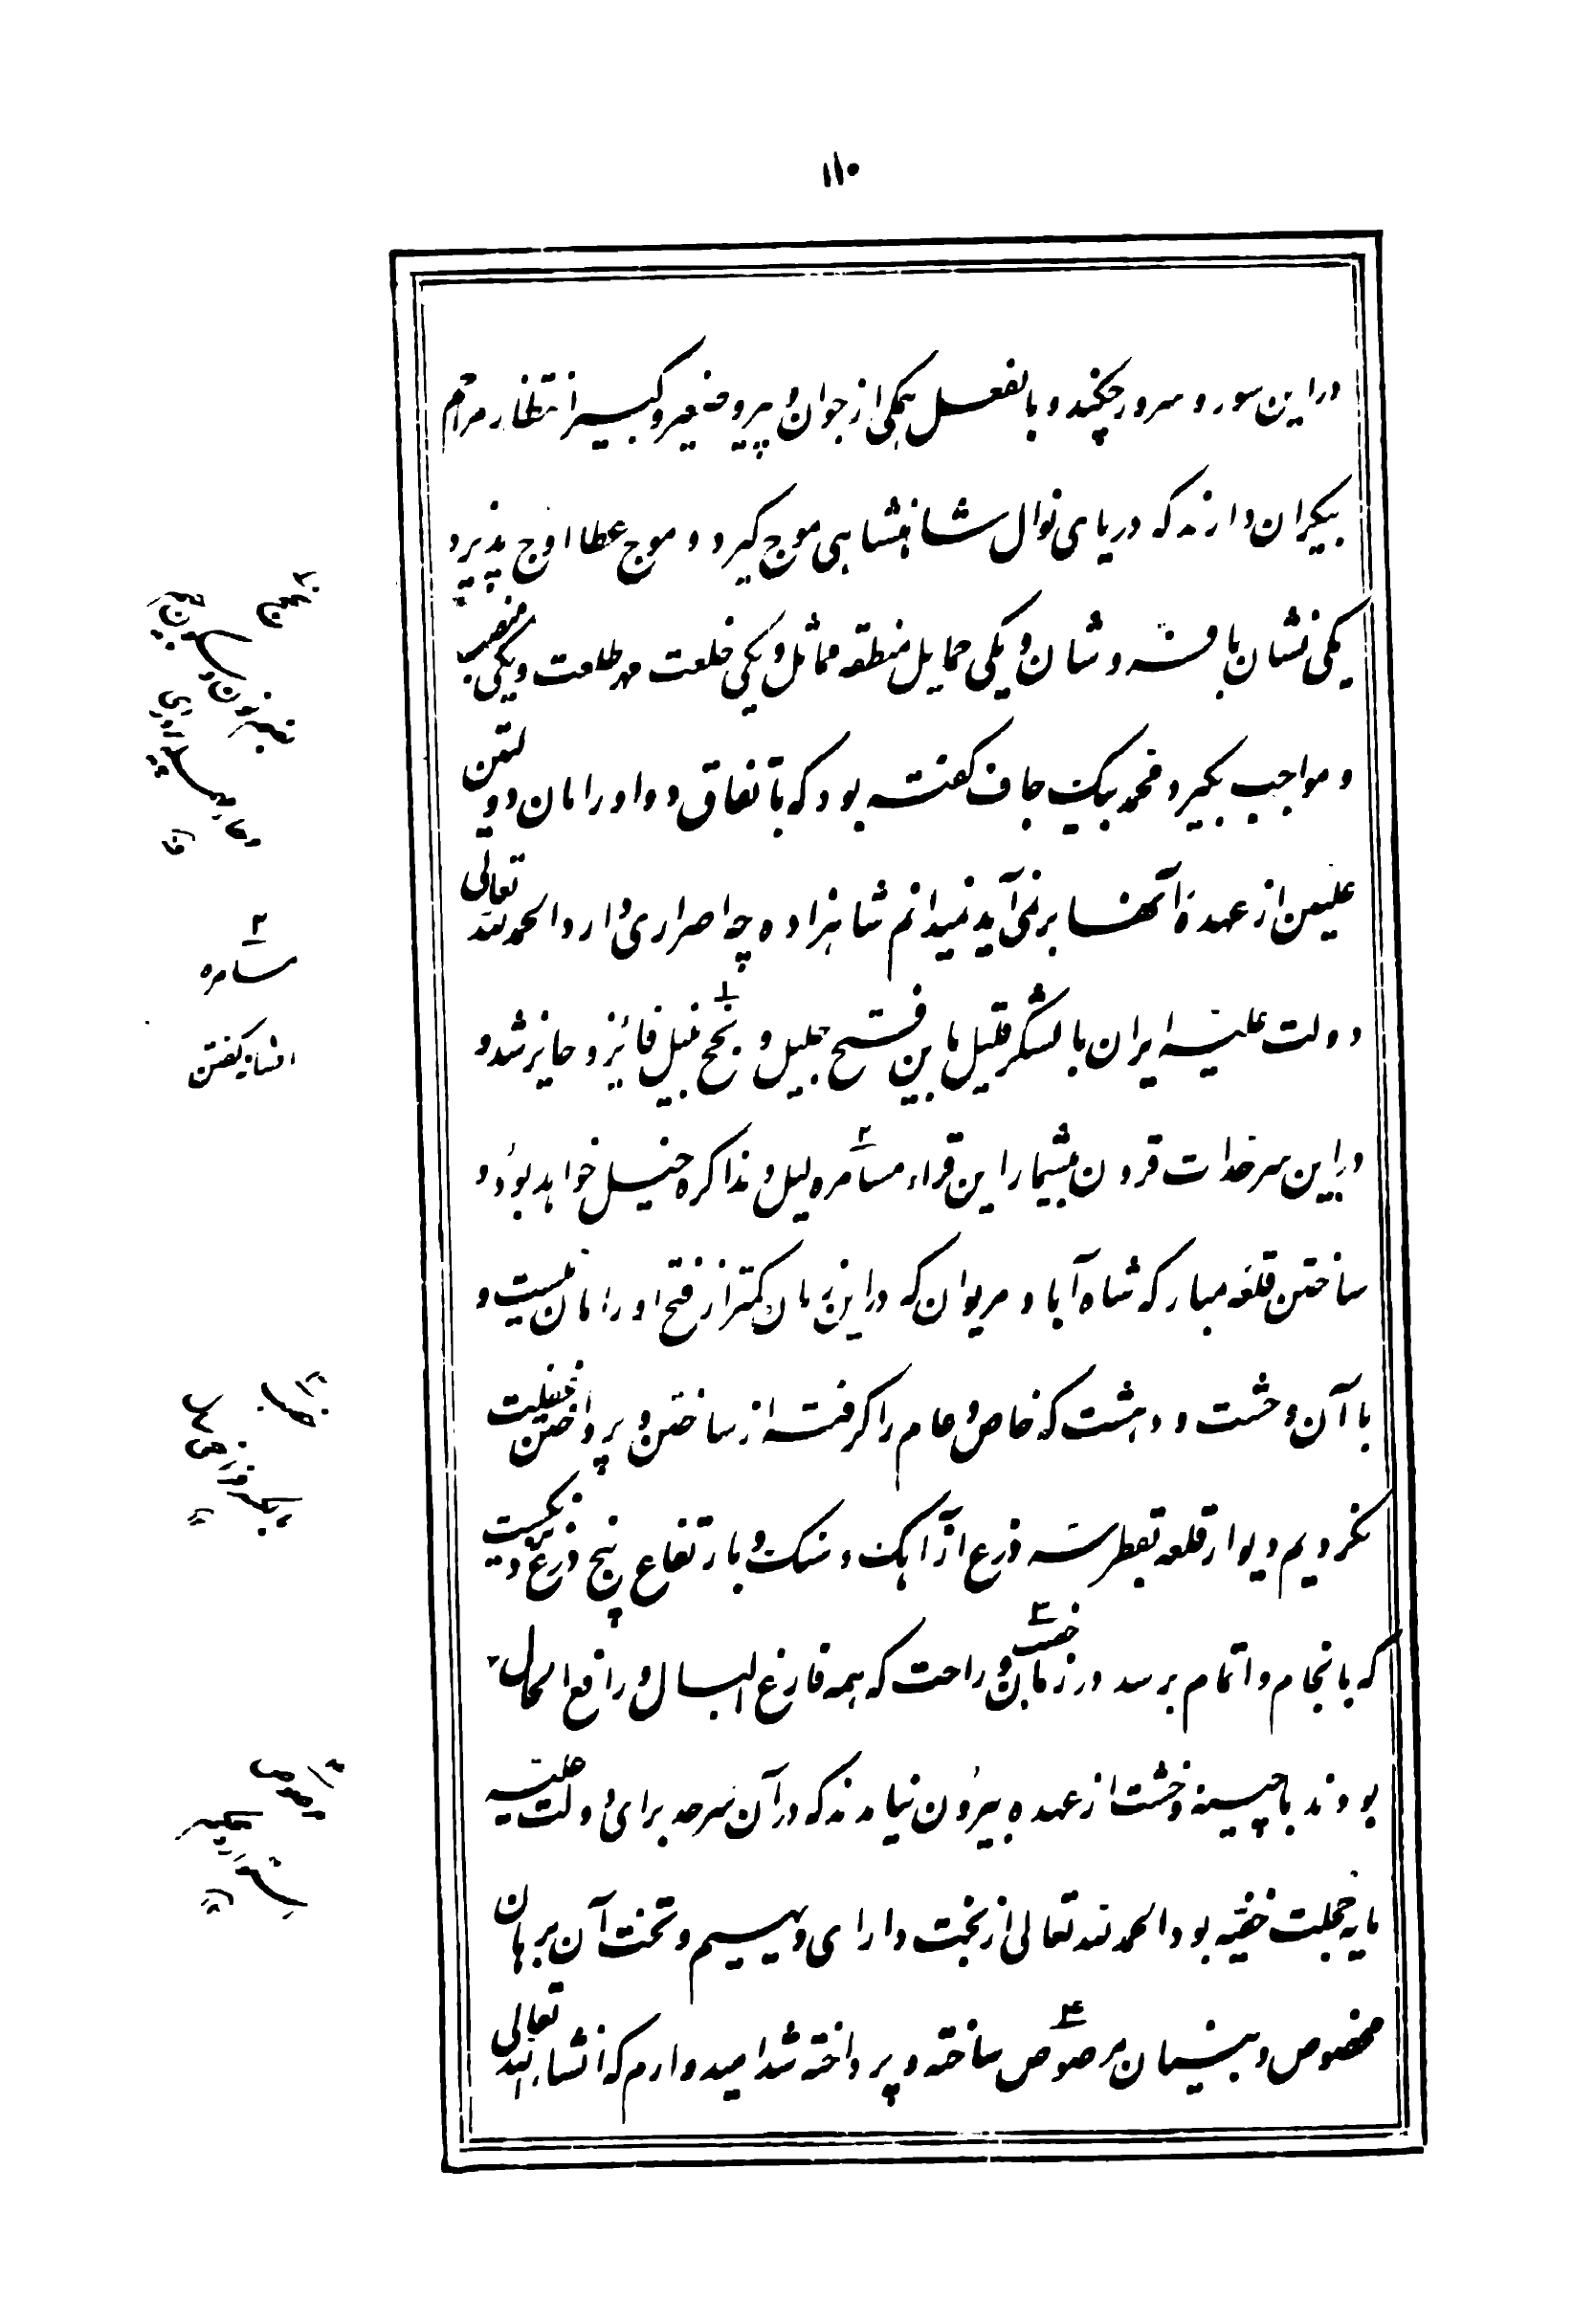 ۱۱۰
در این سور و سرور چکنند و بالفعل همگی از جوان و پیر و صغیر و کبیر انتظار مراحم
بیکران دارند که دریای نوال شاهنشاهی موج گیرد و موج عطا اوج پذیرد
یکی نشان با فره و شان و یکی حمایل منطقه مماثل و یکی خلعت مهر طلعت و یکی منصب
و مواجب بگیرد محمد بیک جاف گفته بود که باتفاق دو اورامان دولتین
علیتین از عهده آنها بر نمی‌آید نمیدانم شاهزاده چه اصراری دارد الحمد لله تعالی
دولت علیه ایران با لشگر قلیل باین فتح جلیل و نجح نبیل فائز و حایز شد و
در این سرحدات قرون بیشمار این قراء مسامره لیل و مذاکره خیل خواهد بود و
ساختن قلعه مبارکه شاه‌آباد مریوان که در این زمان کمتر از فتح اورامان نیست و
با آن وحشت و دهشت که خاص و عام را گرفته از ساختن و پرداختن غفلت
نکردیم دیوار قلعه بقطر سه ذرع از آهک و سنگ و بارتفاع پنج ذرع نزدیکست
که بانجام و اتمام برسد در زمان خصب و راحت که همه فارغ البال و رافع الحال
بودند با چینه و خشت از عهده بیرون نیامدند که در آن سرحد برای دولت علیه
مایه خجلت خفیه بود الحمد لله تعالی از بخت دارای دیهیم و تخت آن برهان
مخصوص و بنیان مرصوص ساخته و پرداخته شد امیدوارم که انشاء الله تعالی
۲
مسامره
افسانه گفتن